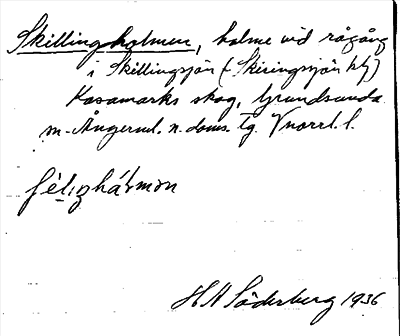 Skillingholmen, holme vid rågång
i Skillingsjön (Skeringsjön
Kasamarks skog, Grundsunda
m. Ångerml. n. doms. Tg. Vnorrl. l.
H A Söderberg 1936